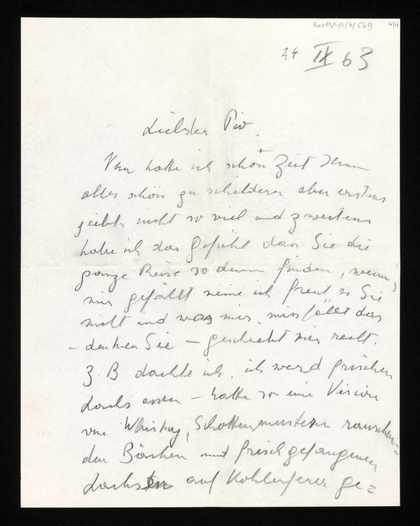 24 IX 63
Liebster Piv.
Nun hatte ich schön Zeit Ihnen
alles schön zu schildern aber erstens
giebts nicht so viel und zweitens
habe ich das Gefühl dass Sie die
ganze Reise so dumm finden, wenn's
mir gefällt meine ich freut es Sie
nicht und was mir missfällt das
– denken Sie – geschieht mir recht.
Z. B dachte ich, ich werd frischen
Lachs essen – hatte so eine Vision
von Whisky, Schottenmustern rauschen=
den Bächen und frischgefangenen
Lachsen auf Kohlenfeuer ge=